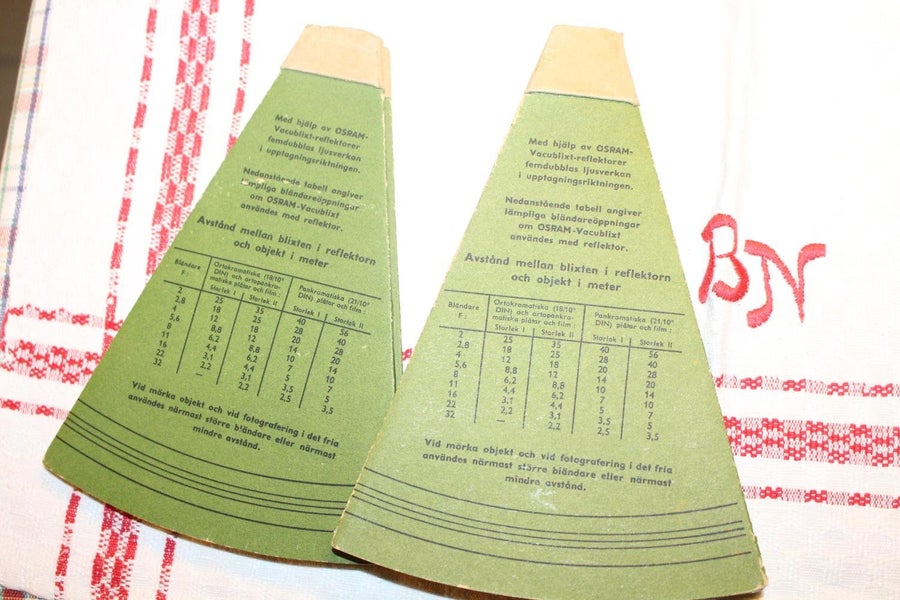 Med hjälp av OSRAM-
Vacublixt-reflektorer
femdubblas ljusverkan
i upptagningsriktningen.
Nedanstående tabell angiver
lämpliga bländareöppningar
om OSRAM-Vacublixt
användes med reflektor.
Avstånd mellan blixten i reflektorn
och objekt i meter
Bländare F: Ortokromatiska (18/10° DIN) och ortopankromatiska plåtar och film: Pankromatiska (21/10° DIN) plåtar och film:
Storlek I Storlek II Storlek I Storlek II
2 25 35 40 56
2,8 18 25 28 40
4 12 18 20 28
5,6 8,8 12 14 20
8 6,2 8,8 10 14
11 4,4 6,2 7 10
16 3,1 4,4 5 7
22 2,2 3,1 3,5 5
32 — 2,2 2,5 3,5
Vid mörka objekt och vid fotografering i det fria
användes närmast större bländare eller närmast
mindre avstånd.
Med hjälp av OSRAM-
Vacublixt-reflektorer
femdubblas ljusverkan
i upptagningsriktningen.
Nedanstående tabell angiver
lämpliga bländareöppningar
om OSRAM-Vacublixt
användes med reflektor.
Avstånd mellan blixten i reflektorn
och objekt i meter
Bländare F: Ortokromatiska (18/10° DIN) och ortopankromatiska plåtar och film: Pankromatiska (21/10° DIN) plåtar och film:
Storlek I Storlek II Storlek I Storlek II
2 25 35 40 56
2,8 18 25 28 40
4 12 18 20 28
5,6 8,8 12 14 20
8 6,2 8,8 10 14
11 4,4 6,2 7 10
16 3,1 4,4 5 7
22 2,2 3,1 3,5 5
32 — 2,2 2,5 3,5
Vid mörka objekt och vid fotografering i det fria
användes närmast större bländare eller närmast
mindre avstånd.
BN